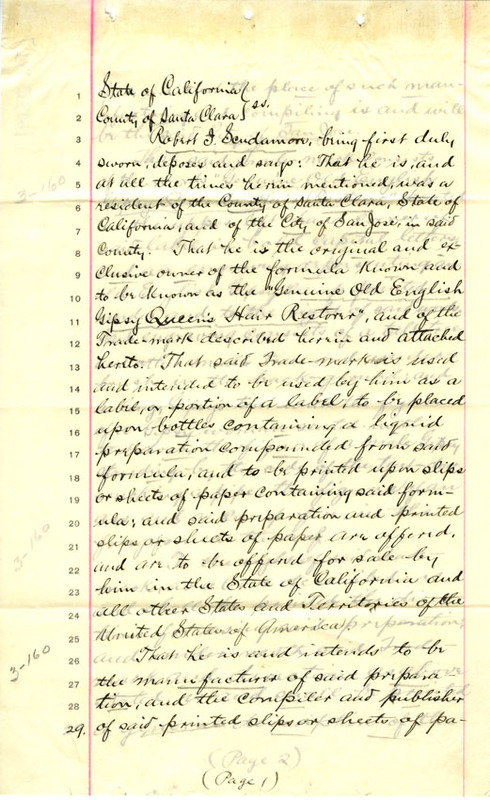 1 State of California } ss.
2 County of Santa Clara
3 Robert I. Scudamon, being first duly
4 sworn, deposes and says: That he is, and
5 at all the times herein mentioned, was a
6 resident of the County of Santa Clara, State of
7 California, and of the City of San José, in said
8 County. That he is the original and ex-
9 clusive owner of the formula known and
10 to be known as the "Genuine Old English
11 Gipsy Queen's Hair Restorer", and of the
12 Trade-mark described herein and attached
13 hereto. That said Trade-mark is used
14 and intended to be used by him as a
15 label, or portion of a label, to be placed
16 upon bottles containing a liquid
17 preparation compounded from said
18 formula, and to be printed upon slips
19 or sheets of paper containing said form-
20 ula; and said preparation and printed
21 slips or sheets of paper are offered,
22 and are to be offered for sale by
23 him in the State of California and
24 all other States and Territories of the
25 United States of America
26 That he is and intends to be
27 the manufacturer of said prepara
28 tion, and the compiler and publisher
29. of said printed slips or sheets of pa-
3-160
3-160
3-160
(Page 2)
(Page 1)